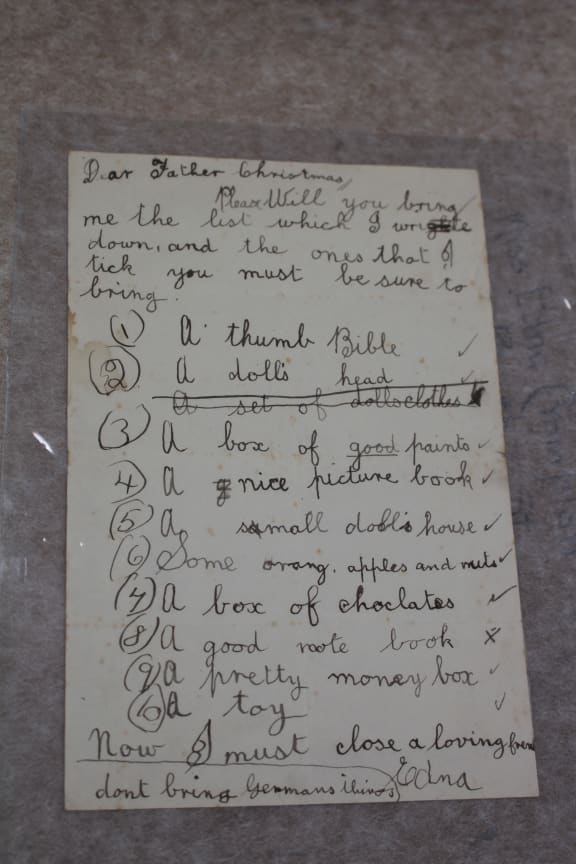 Dear Father Christmas,
Please Will you bring
me the list which I write
down, and the ones that I
tick you must be sure to
bring.
(1) A thumb Bible ✓
(2) A dolls head ✓
A set of dollsclothes
(3) A box of good paints ✓
(4) A nice picture book ✓
(5) A small doll's house ✓
(6) Some orang. apples and nuts ✓
(7) A box of choclates ✓
(8) A good note book x
(9) A pretty money box ✓
(10) A toy ✓
Now I must close a loving
dont bring Germans things Edna